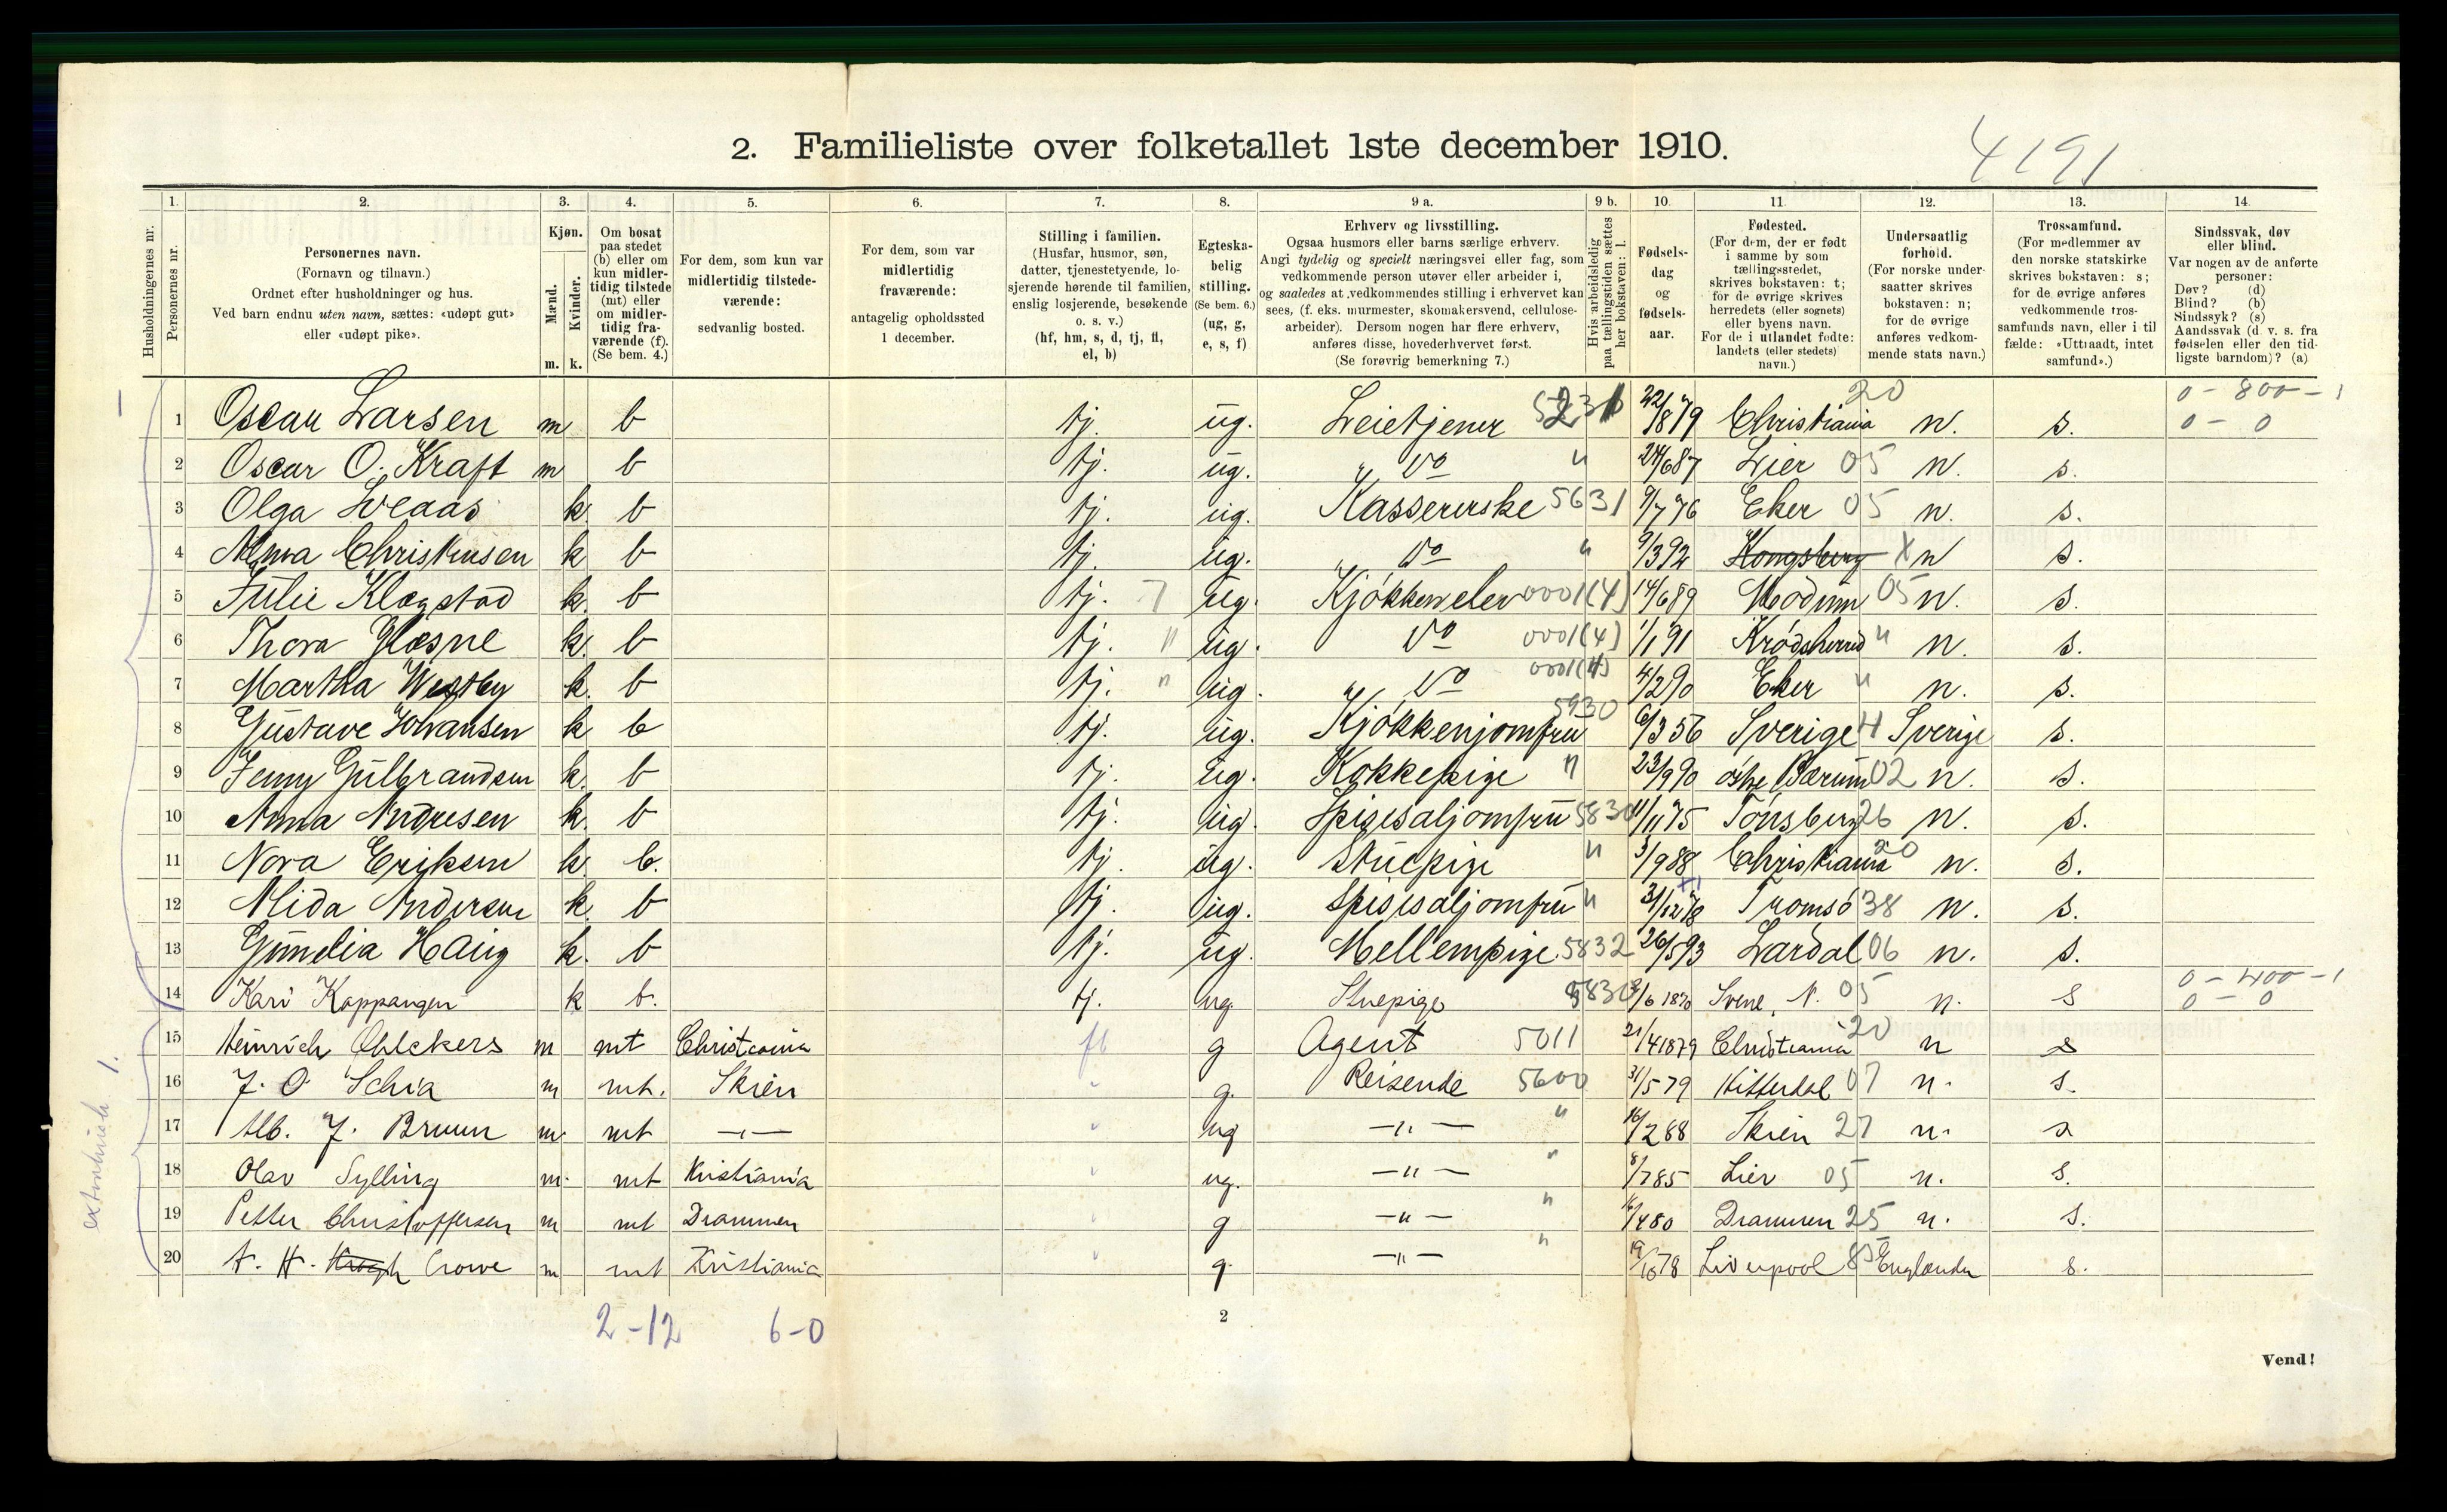 4191
2. Familieliste over folketallet 1ste december 1910.
1. 2. 3. 4. 5. 6. 7. 8. 9 a. 9 b. 10. 11. 12. 13. 14.
Husholdningernes nr.
Personernes nr.
Personernes navn.
(Fornavn og tilnavn.)
Ordnet efter husholdninger og hus.
Ved barn endnu uten navn, sættes: «udøpt gut»
eller «udøpt pike».
Kjøn.
Mænd.
Kvinder.
m. k.
Om bosat
paa stedet
(b) eller om
kun midler-
tidig tilstede
(mt) eller
om midler-
tidig fra-
værende (f).
(Se bem. 4.)
For dem, som kun var
midlertidig tilstede-
værende:
sedvanlig bosted.
For dem, som var
midlertidig
fraværende:
antagelig opholdssted
1 december.
Stilling i familien.
(Husfar, husmor, søn,
datter, tjenestetyende, lo-
sjerende hørende til familien,
enslig losjerende, besøkende
o. s. v.)
(hf, hm, s, d, tj, fl,
el, b)
Egteska-
belig
stilling.
(Se bem. 6.)
(ug, g,
e, s, f)
Erhverv og livsstilling.
Ogsaa husmors eller barns særlige erhverv.
Angi tydelig og specielt næringsvei eller fag, som
vedkommende person utøver eller arbeider i,
og saaledes at vedkommendes stilling i erhvervet kan
sees, (f. eks. murmester, skomakersvend, cellulose-
arbeider). Dersom nogen har flere erhverv,
anføres disse, hovederhvervet først.
(Se forøvrig bemerkning 7.)
Hvis arbeidsledig
paa tællingstiden sættes
her bokstaven: l.
Fødsels-
dag
og
fødsels-
aar.
Fødested.
(For dem, der er født
i samme by som
tællingsstedet,
skrives bokstaven: t;
for de øvrige skrives
herredets (eller sognets)
eller byens navn.
For de i utlandet fødte:
landets (eller stedets)
navn.)
Undersaatlig
forhold.
(For norske under-
saatter skrives
bokstaven: n;
for de øvrige
anføres vedkom-
mende stats navn.)
Trossamfund.
(For medlemmer av
den norske statskirke
skrives bokstaven: s;
for de øvrige anføres
vedkommende tros-
samfunds navn, eller i til
fælde: «Uttraadt, intet
samfund».)
Sindssvak, døv
eller blind.
Var nogen av de anførte
personer:
Døv? (d)
Blind? (b)
Sindssyk? (s)
Aandssvak (d. v. s. fra
fødselen eller den tid-
ligste barndom)? (a)
1 Oscar Larsen m b tj. ug. Leietjener 5231 22/8 79 Christiania 20 n. s. 0-800-1 0-0
2 Oscar O. Kraft m b tj. ug. Do " 24/6 87 Lier 05 n. s.
3 Olga k. b tj. ug. Kassererske 5631 9/7 76 Eker 05 n. s.
4 Alma Christensen k b tj. ug. Do " 9/3 92 Kongsberg X n s.
5 Julie Klogstad k. b tj. 7 ug. Kjøkkenelev 0001(4) 14/6 89 Modum 05 n. s.
6 Thora Glesne k. b tj. " ug. Do 0001(4) 1/1 91 Krødsherred " n. s.
7 Martha Westby k. b tj. " ug. Do 0001(4) 4/2 90 Eker " n. s.
8 Gustave Johansen k b tj. ug. Kjøkkenjomfru 5930 6/3 56 Sverige H Sverige s.
9 Jenny Gulbrandsen k. b tj. ug. Kokkepige " 23/9 90 østre Bærum 02 n. s.
10 Anna Andresen k. b tj. ug. Spisesaljomfru 5830 11/11 75 Tønsberg 26 n. s.
11 Nora Eriksen k. b. tj. ug. Stuepige " 3/9 88 Christiania 20 n. s.
12 Alida Andersen k. b tj. ug. Spisesaljomfru " 31/12 78 Tromsø 38 n. s.
13 Gunelia Haug k. b tj. ug. Mellempige 5832 26/5 93 Lardal 06 n. s.
14 Kari Koppangen k b. tj. ug. Stuepige 5830 /6 1870 Svene, N. 05 n. s 0-400-1 0-0
15 Heinrich Ohlckers m mt Christiania fl g Agent 5011 21/4 1879 Christiania 20 n s
16 J. O Schia m mt. Skien " g. Reisende 5600 31/5 79 Hitterdal 07 n. s.
17 Alb. J. Bruun m. mt —"— " ug —"— " 16/2 88 Skien 27 n. s
18 Olav Sylling m. mt Kristiania " ug. —"— " 8/7 85 Lier 05 n. s.
19 Petter Christoffersen m mt Drammen " g —"— " 16/4 80 Drammen 25 n. s.
20 A. H. Krogh Crowe m mt Kristiania " g. —"— " 19/10 78 Liverpool 85 Englænder s.
2-12 6-0
2
Vend!